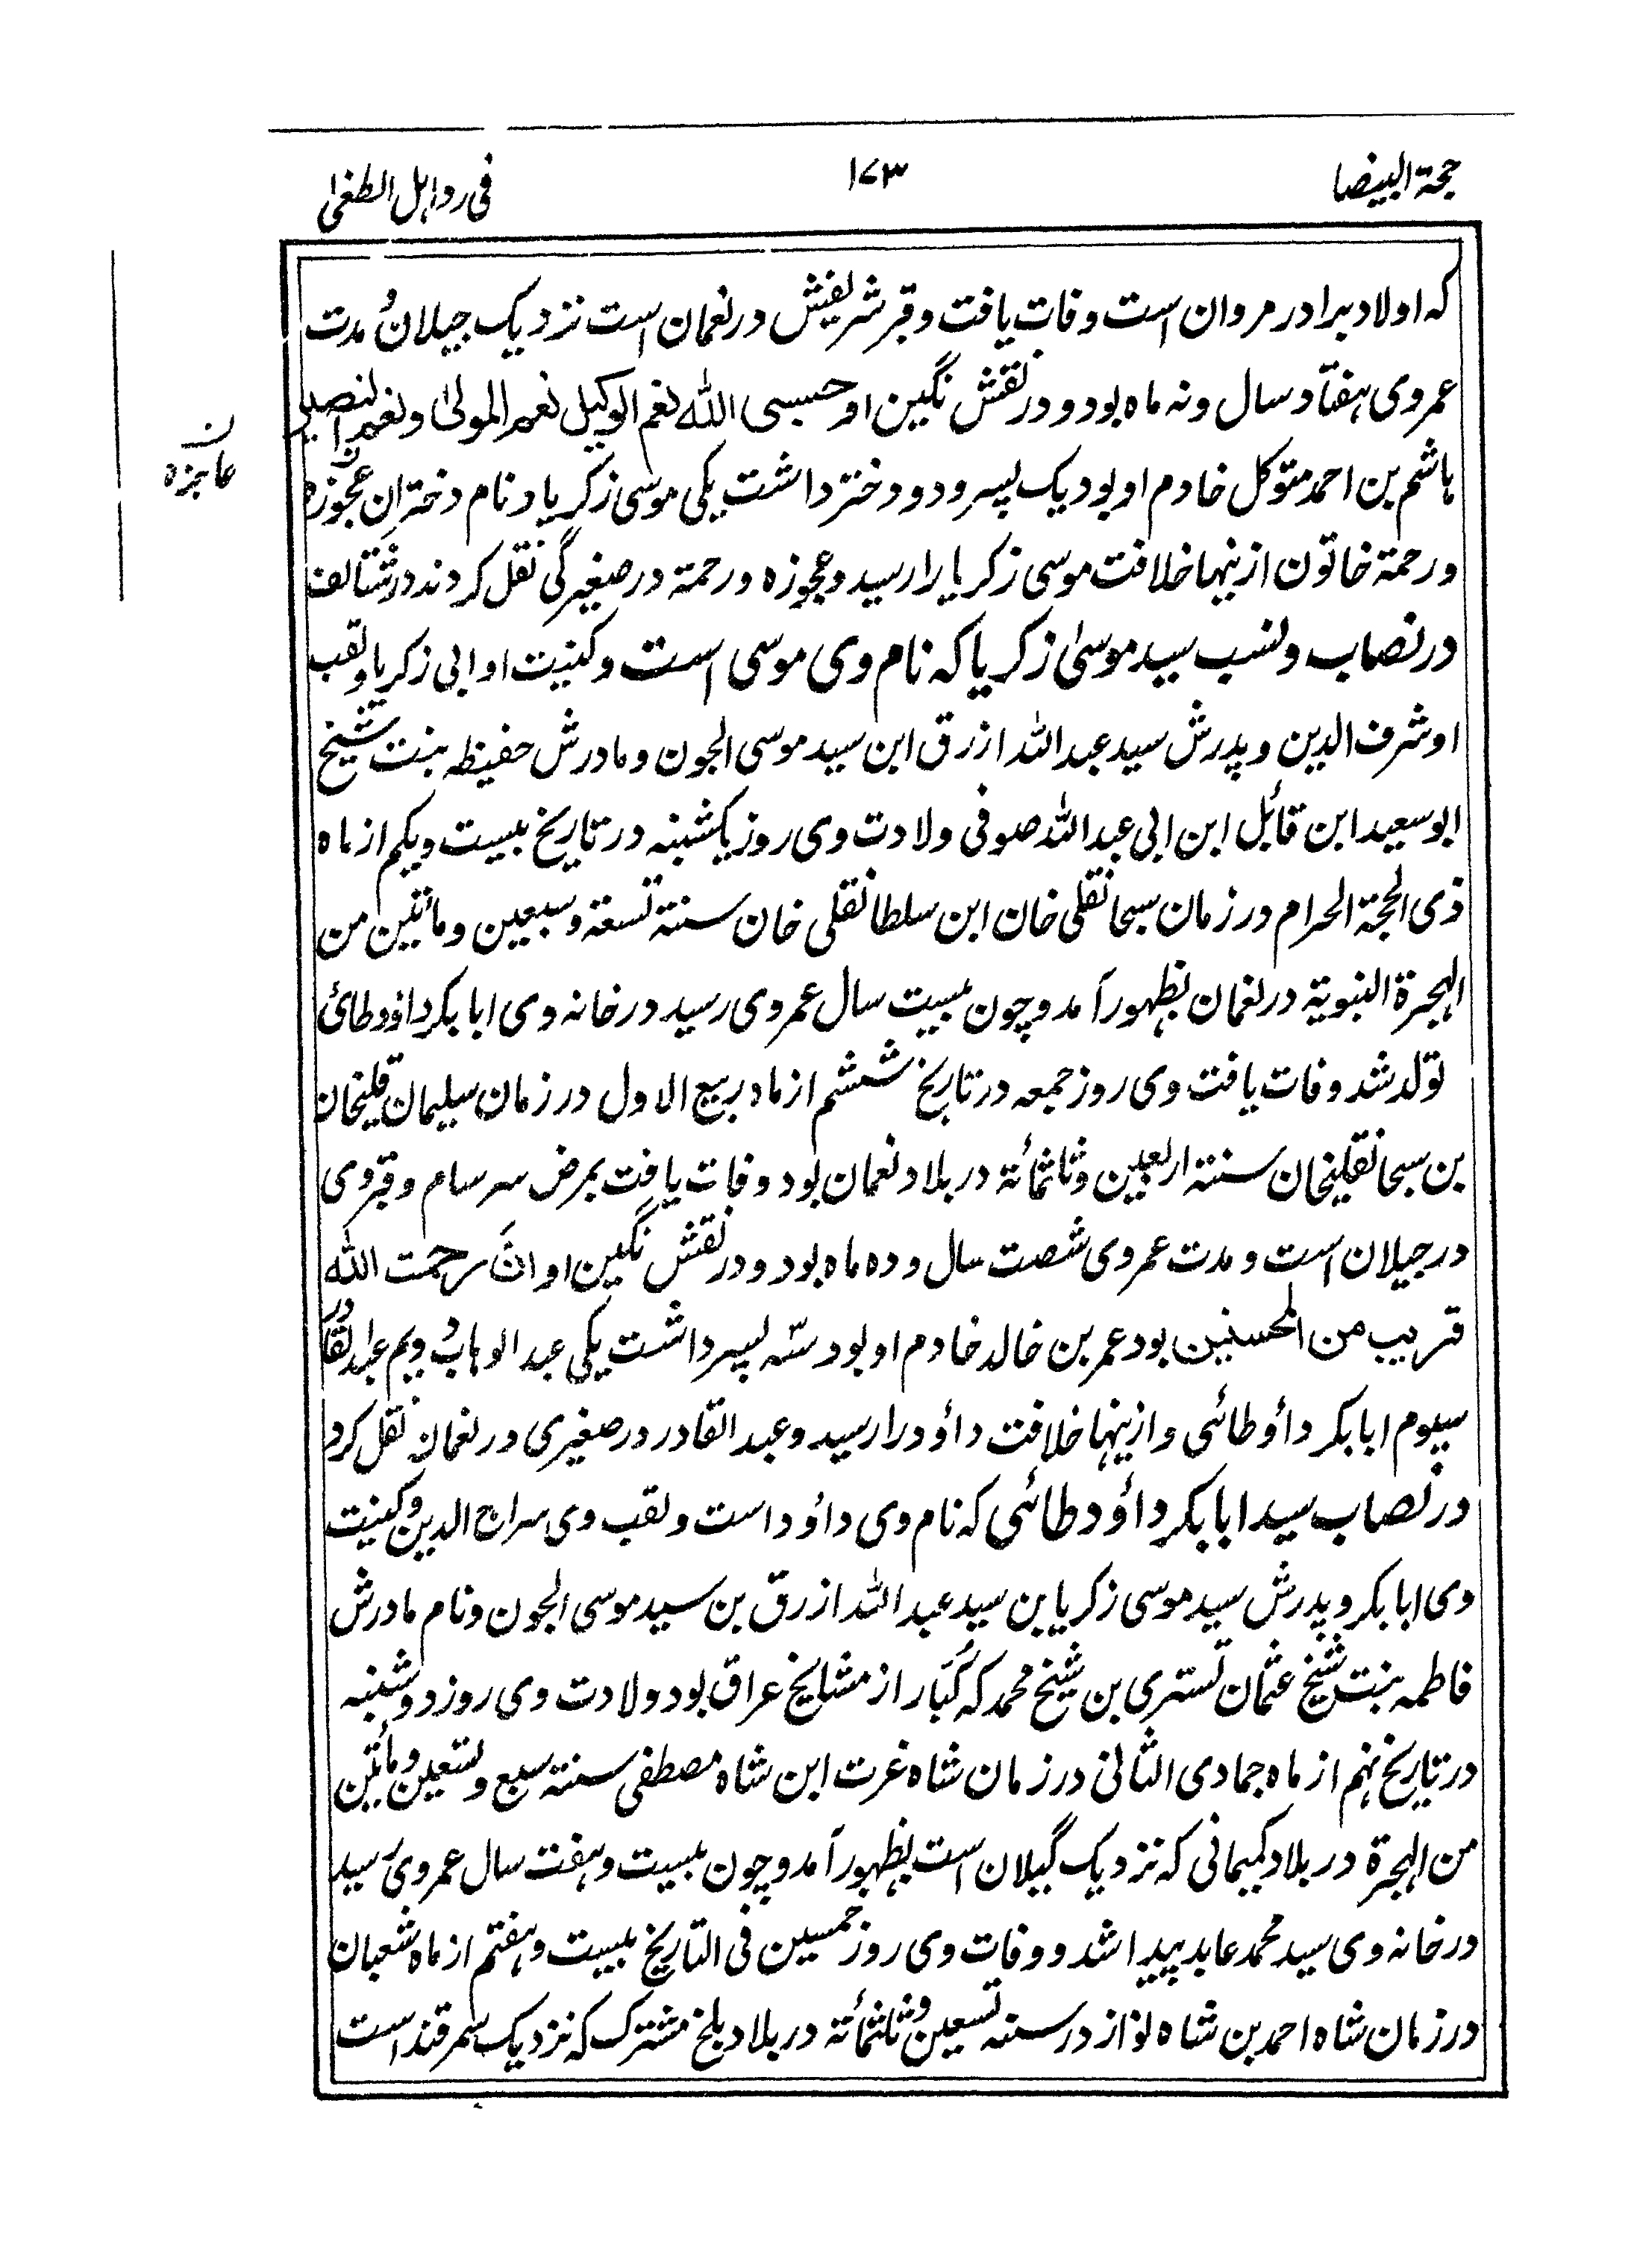 حجة البیضا
۱۷۳
فی رد اہل الطغیٰ
کہ اولاد برادر مروان است وفات یافت وقبر شریفش در نعمان است نزدیک جیلان و مدت
عمروی ہفتاد سال ونہ ماہ بود و در نقش نگین او حسبی اللہ نعم الوکیل نعم المولیٰ ونعم النصیر
ہاشم بن احمد متوکل خادم او بود یک پسر و دو دختر داشت یکی موسی زکریا و نام دختران عجوزہ
ن عاجزہ
ورحمۃ خاتون ازینہا خلافت موسی زکریا را رسید و عجوزہ ورحمۃ در صغیرگی نقل کردند در
در نصاب ونسب سید موسیٰ زکریا کہ نام وی موسی است وکنیت او ابی زکریا ولقب
او شرف الدین و پدرش سید عبداللہ ازرق ابن سید موسی الجون ومادرش حفیظہ بنت شیخ
ابوسعید ابن قائل ابن ابی عبداللہ صوفی ولادت وی روز یکشنبہ در تاریخ بیست ویکم از ماہ
ذی الحجۃ الحرام در زمان سبحانقلی خان ابن سلطانقلی خان سنتہ تسعۃ وسبعین ومائتین من
الہجرۃ النبویۃ در نعمان بظہور آمد و چون بیست سال عمروی رسید در خانہ وی ابابکر داؤد طائی
تولد شد وفات یافت وی روز جمعہ در تاریخ ششم از ماہ ربیع الاول در زمان سلیمان قلیخان
بن سبحانقلیخان سنتہ اربعین وثلثمائۃ در بلاد نعمان بود وفات یافت بمرض سرسام وقبر وی
در جیلان است و مدت عمروی شصت سال و دہ ماہ بود و در نقش نگین او انَّ رحمت اللہ
قریب من المحسنین بود عمر بن خالد خادم او بود سہ پسر داشت یکی عبدالوہاب دویم عبدالقادر
سیوم ابابکر داؤ طائی وازینہا خلافت داؤد را رسید وعبدالقادر در صغیری در نعمان نقل کرد
در نصاب سید ابابکر داؤد طائی کہ نام وی داؤد است ولقب وی سراج الدین وکنیت
وی ابابکر و پدرش سید موسی زکریا بن سید عبداللہ ازرق بن سید موسی الجون ونام مادرش
فاطمہ بنت شیخ عثمان تستری بن شیخ محمد کہ کُبّار از مشایخ عراق بود ولادت وی روز دوشنبہ
در تاریخ نہم از ماہ جمادی الثانی در زمان شاہ غرت ابن شاہ مصطفی سنتہ سبع وتسعین ومأتین
من الہجرۃ در بلاد کمیمانی کہ نزدیک گیلان است بظہور آمد و چون بیست وہفت سال عمروی رسید
در خانہ وی سید محمد عابد پیدا شد ووفات وی روز خمسین فی التاریخ بیست وہفتم از ماہ شعبان
در زمان شاہ احمد بن شاہ نواز در سنہ تسعین وثلثمائۃ در بلاد بلخ مشترک کہ نزدیک سمرقند است